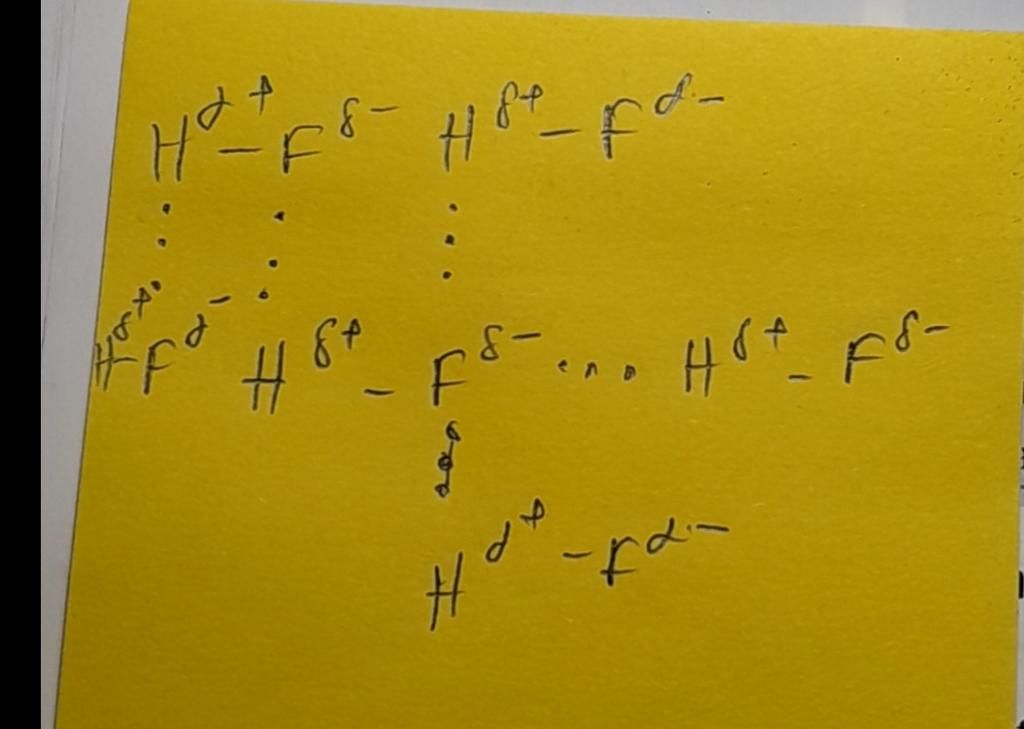 H δ+ – F δ- H δ+ – F δ-
H δ+ – F δ- H δ+ – F δ- ... H δ+ – F δ-
H δ+ – F δ-